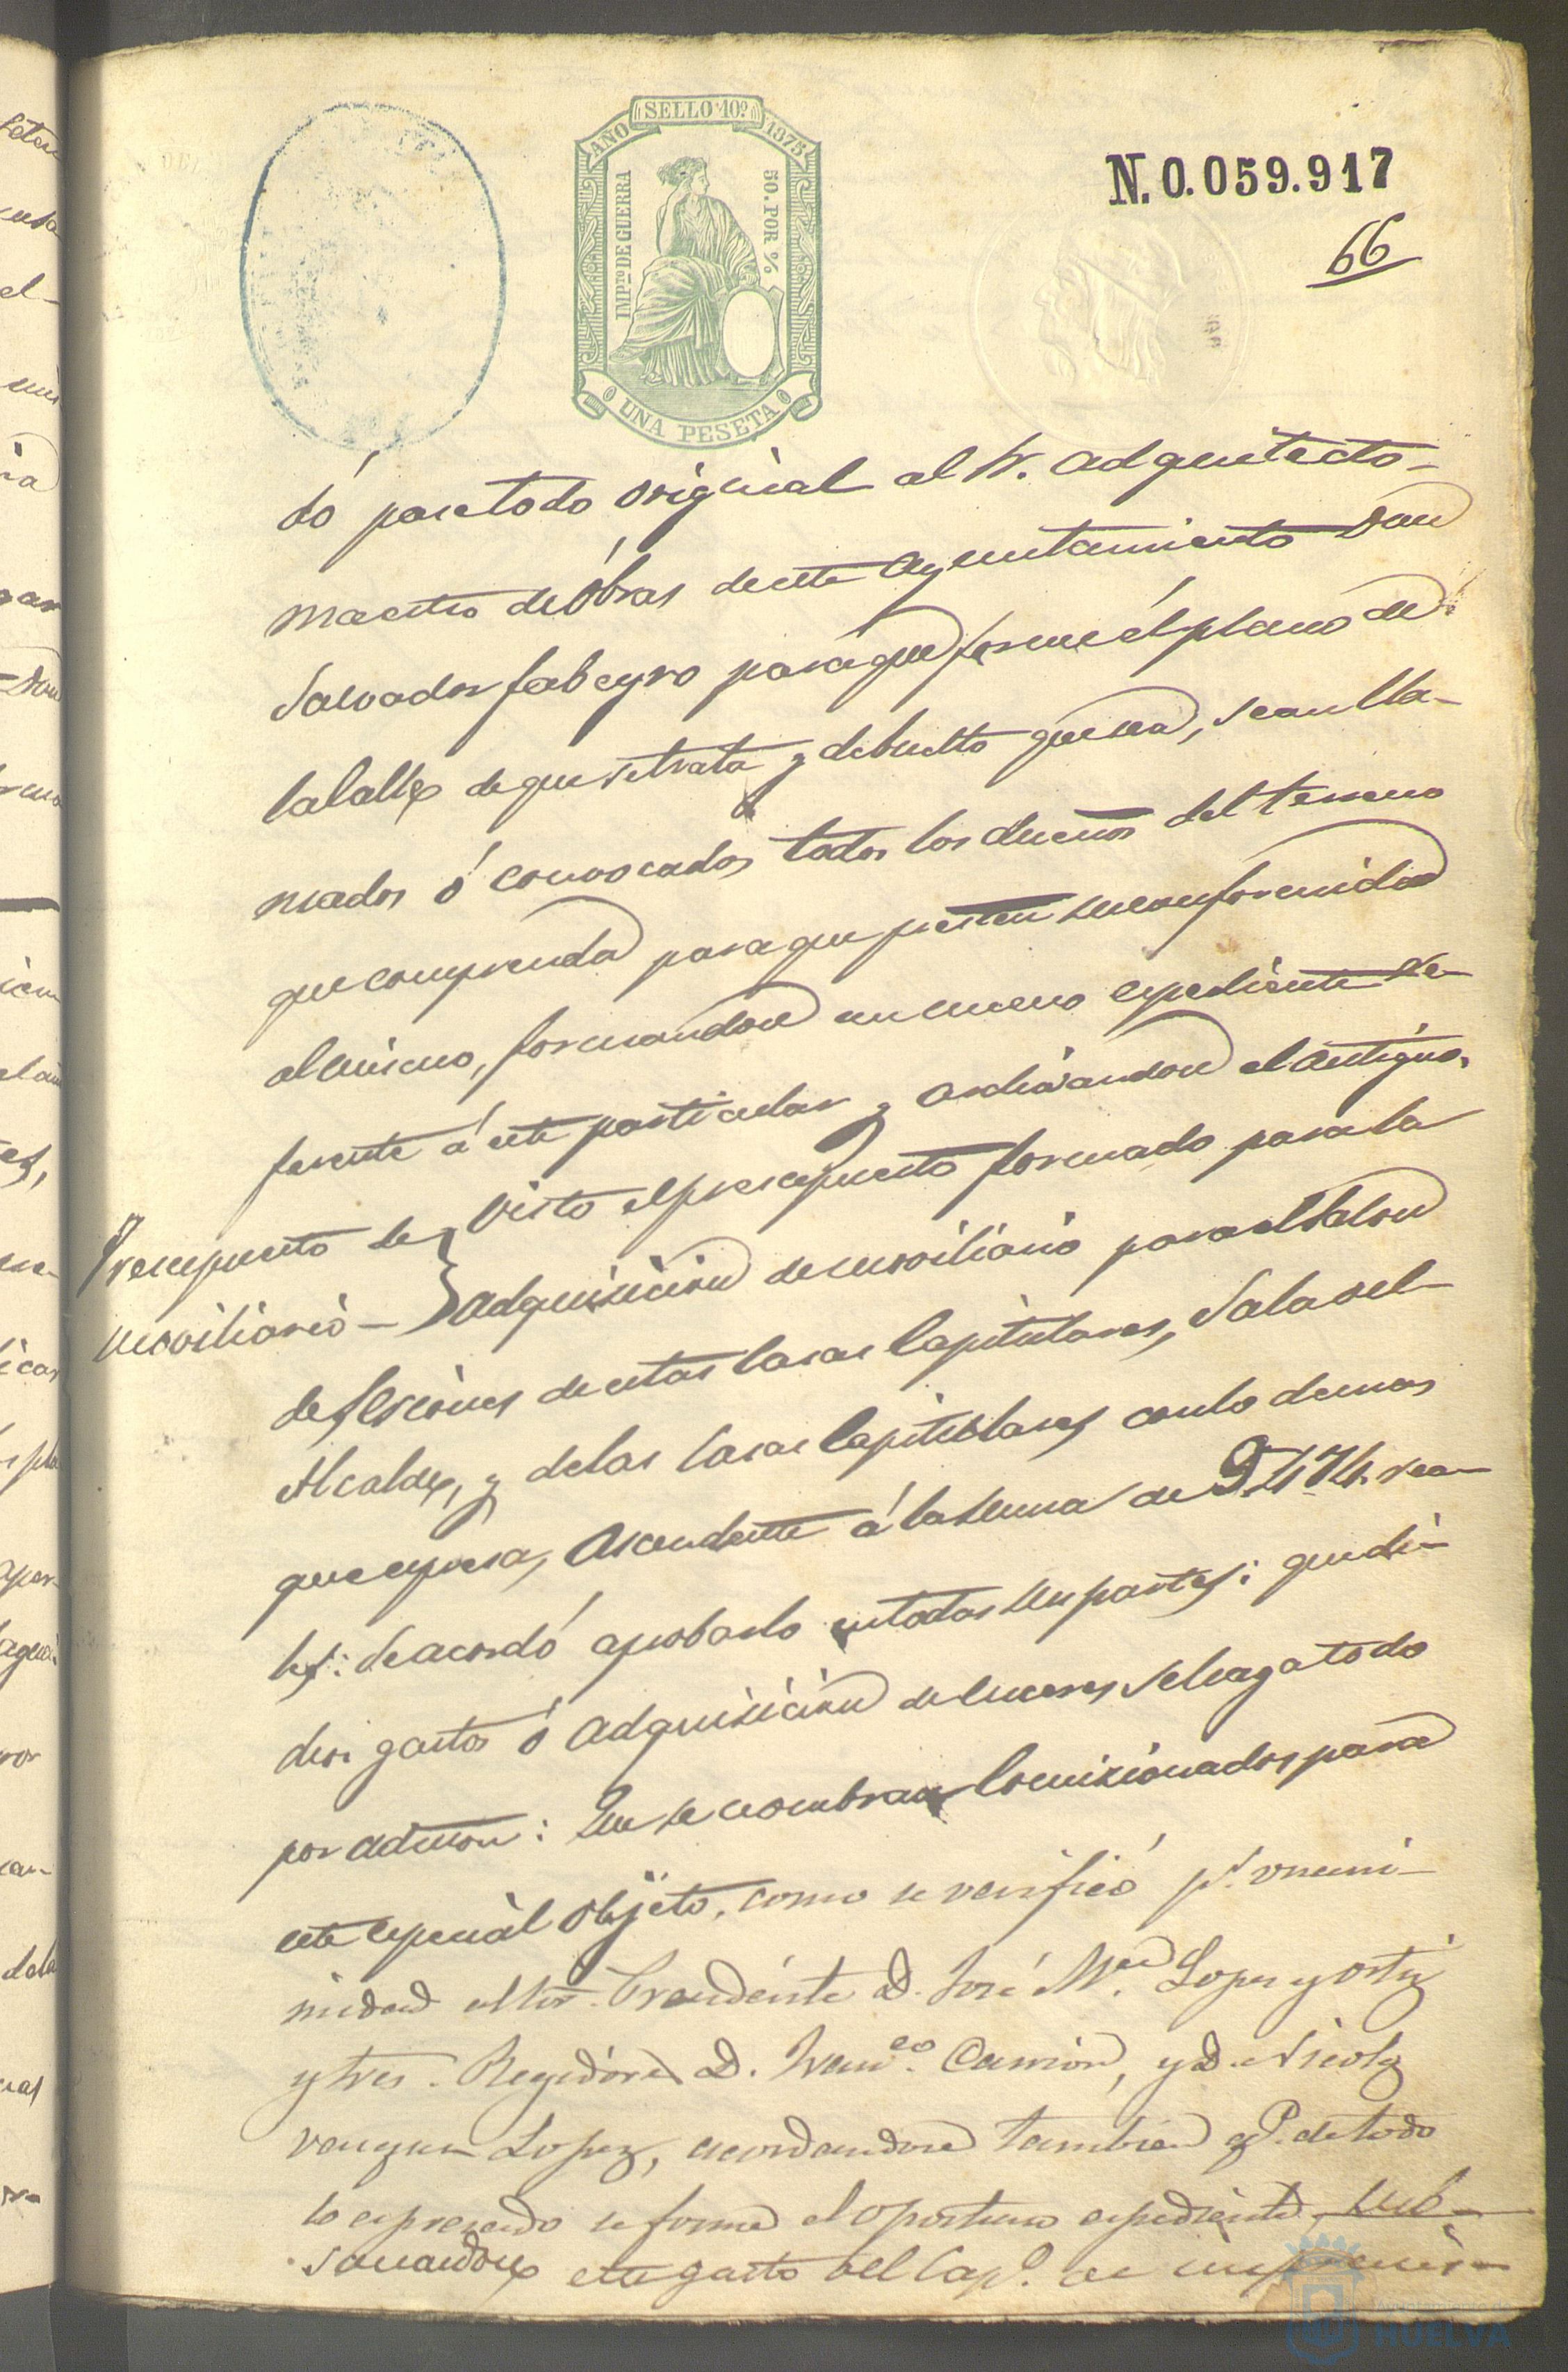 SELLO 10º
AÑO 1875
IMPTO DE GUERRA
50. POR %
UNA PESETA
N. 0.059.917
66
dó pase todo original al Sr. Adquitecto-
maestro de Obras de este Ayuntamiento Don
Salvador fabeyro para que forme él plano de
la Calle de que se trata y debuelto que sea, sean lla-
mados ó convocados todos los dueños del terreno
que comprenda para que presten su conformidad
al mismo, formandose un nuevo espediente re-
ferente á este particular y archivandose el antiguo.
Presupuesto de
moviliario -
Visto el presupuesto formado para la
adquisicion de moviliario para el Salon
de Sesiones de estas Casas Capitulares, Sala del
Alcalde, y de las Casas Capitulares con lo demas
que espresa, ascendente á la suma de 9.474. rea-
les: Se acordó aprobarlo en todas sus partes: que di-
chos gastos ó adquisicion de enseres se haga todo
por admon: Que se nombran Comisionados para
este especial objeto, como se verificó pr. unani-
midad al Sor. Presidente D. José Ma. Lopez y Ortiz
y Sres. Regidores D. Franco. Carrion, y D. Nicolas
Vazquez Lopez, acordandose tambien qe. de todo
lo espresado se forme el oportuno espediente, sub-
sanandose este gasto del Cap. de imprevis-
Ayuntamiento de
HUELVA